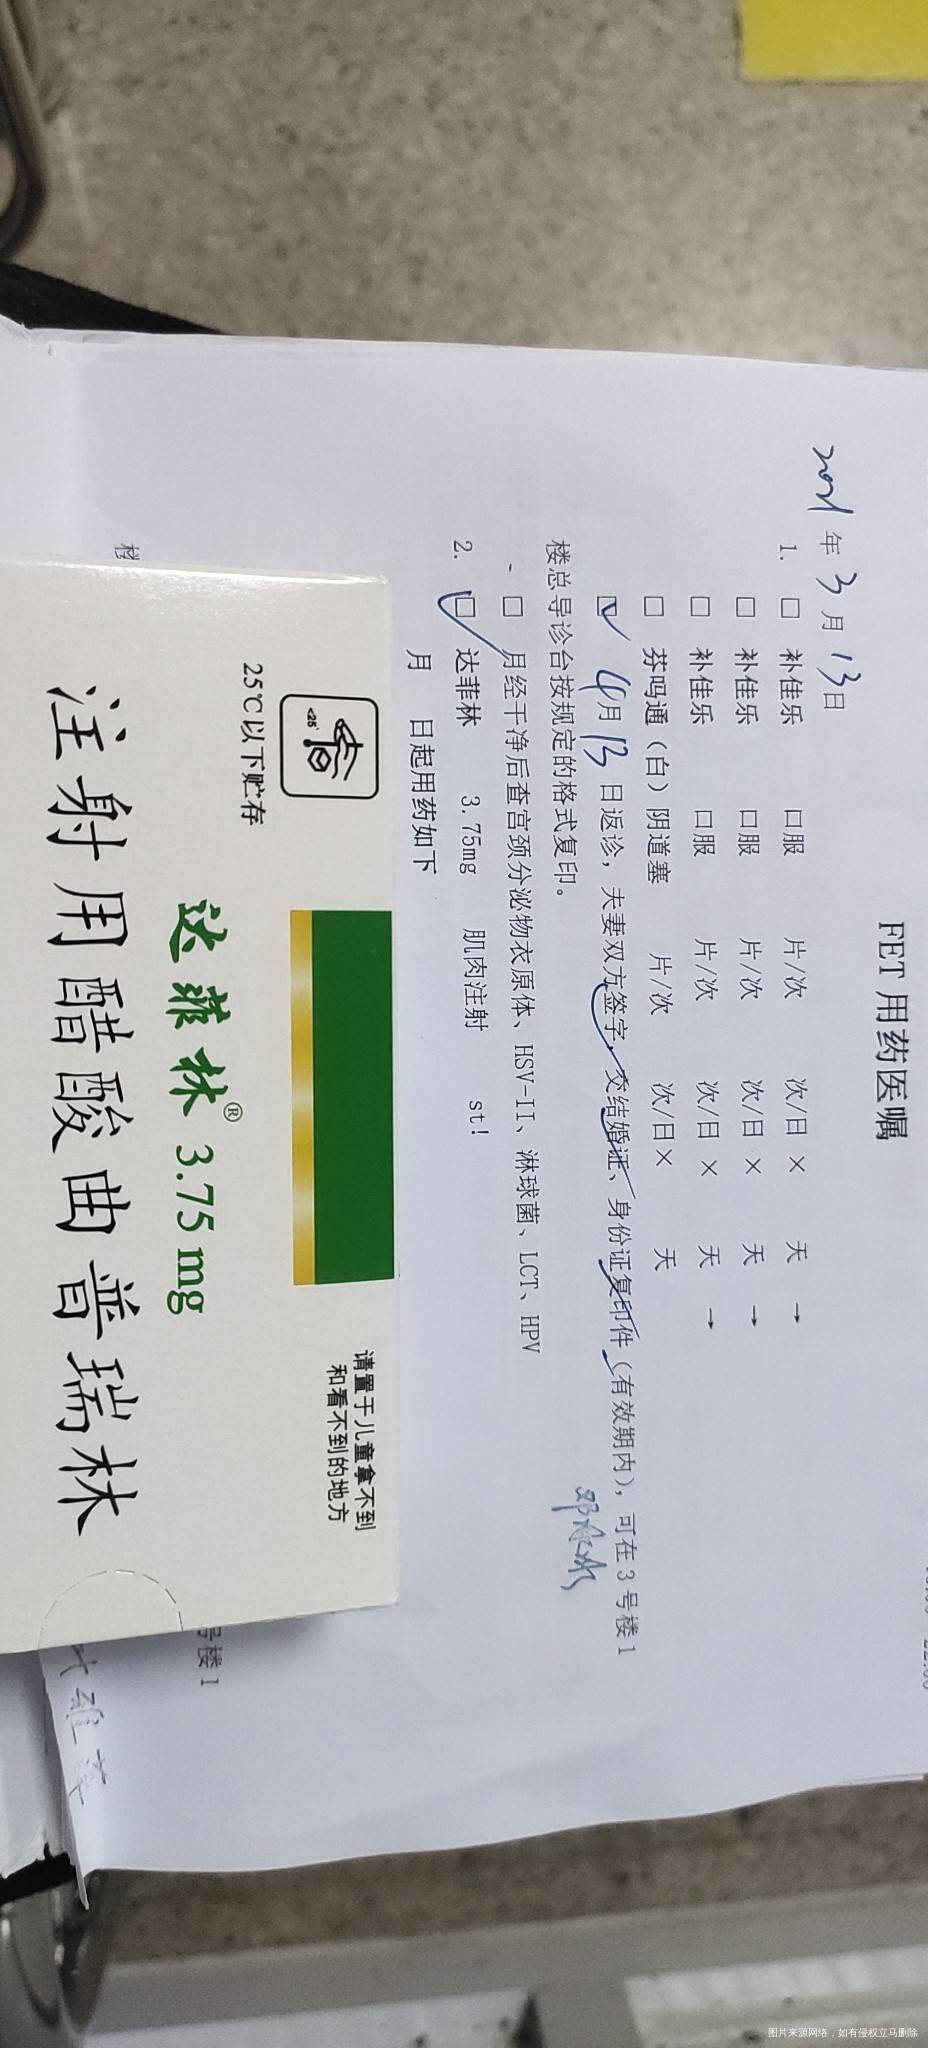 FET 用药医嘱
2021 年 3 月 13 日
1. □ 补佳乐 口服 片/次 次/日 × 天 →
□ 补佳乐 口服 片/次 次/日 × 天 →
□ 补佳乐 口服 片/次 次/日 × 天 →
□ 芬吗通（白）阴道塞 片/次 次/日× 天
☑ 4月 13 日返诊，夫妻双方签字，交结婚证、身份证复印件（有效期内），可在 3 号楼 1
楼总导诊台按规定的格式复印。
□ 月经干净后查宫颈分泌物衣原体、HSV-II、淋球菌、LCT、HPV
2. ☑ 达菲林 3.75mg 肌肉注射 st!
月 日起用药如下
请置于儿童拿不到
和看不到的地方
<25°
25℃以下贮存
达菲林® 3.75 mg
注射用醋酸曲普瑞林
号楼 1
楼
图片来源网络，如有侵权立马删除